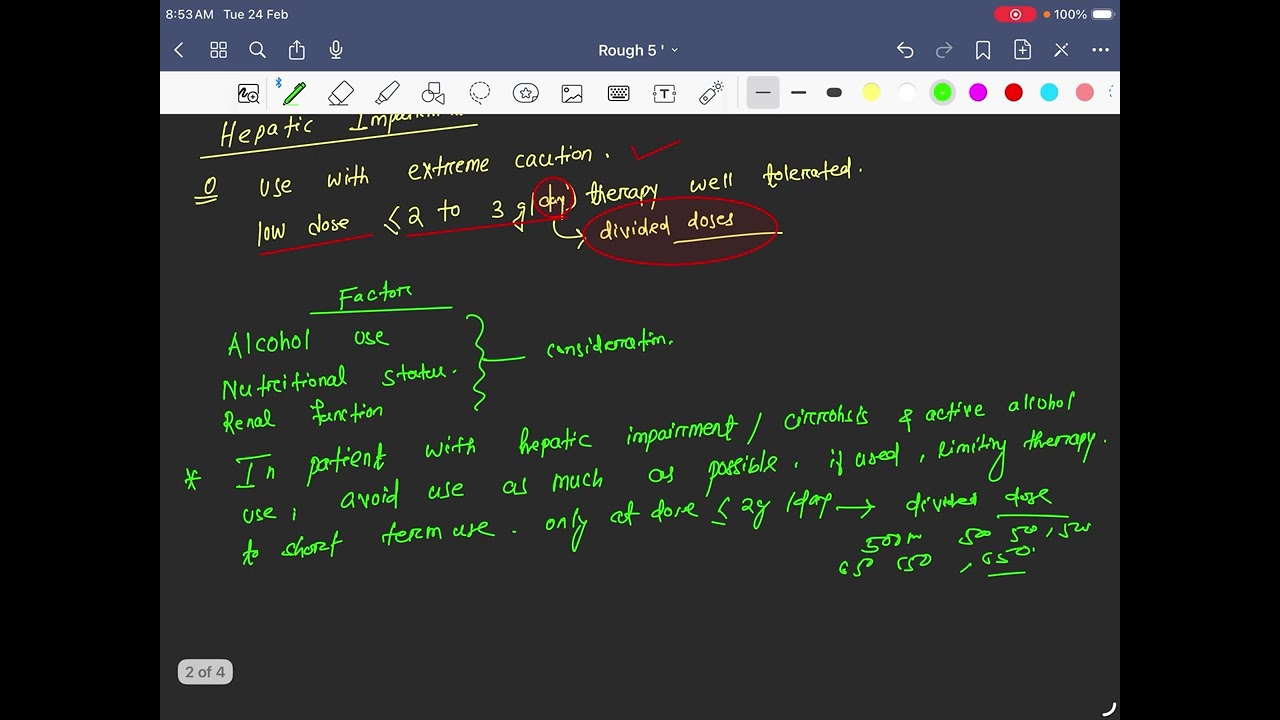 8:53 AM Tue 24 Feb
100%
Rough 5 '
Hepatic Impairm
① use with extreme caution.
low dose ≤ 2 to 3 g/day) therapy well tolerated.
divided doses
Factors
Alcohol use
Nutritional status.
Renal function
consideration.
* In patient with hepatic impairment / cirrohsis & active alcohol
use, avoid use as much as possible. if used, limiting therapy.
to short term use. only at dose ≤ 2g /day → divided dose
500m 500 500, 500
650 650, 650.
2 of 4